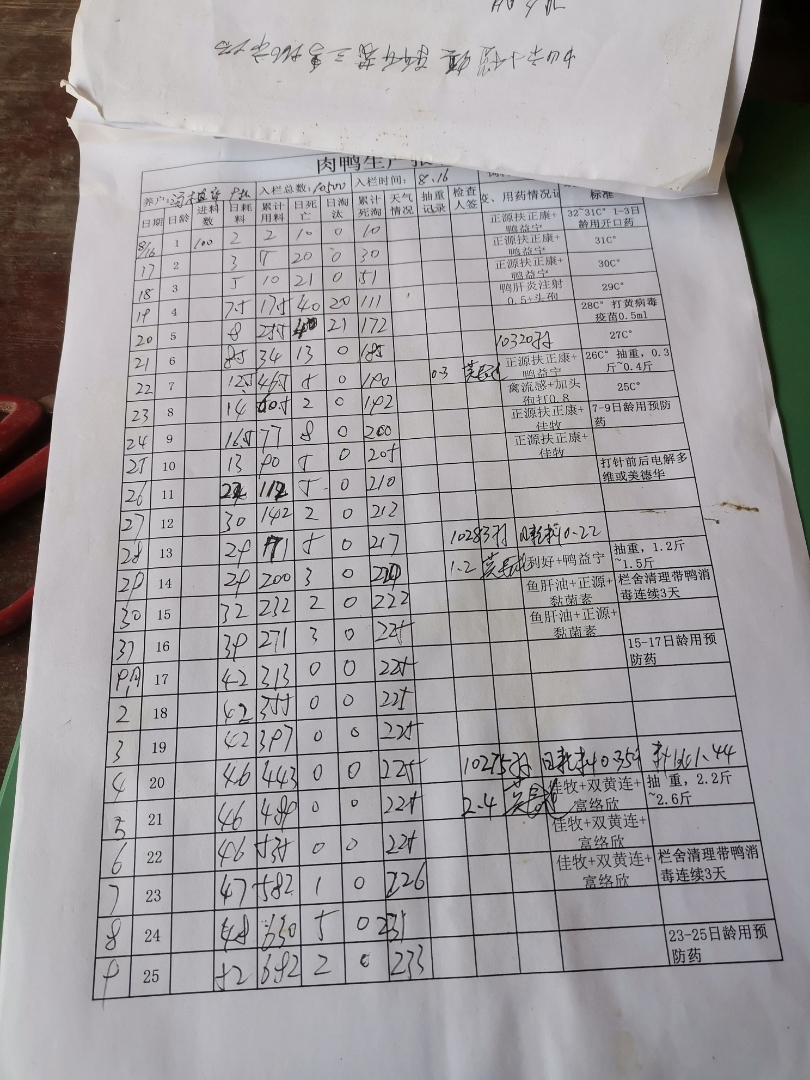 肉鸭生产报
养户: 入栏总数:10500 入栏时间:8.16
日期 日龄 进料数 日耗料 累计用料 日死亡 日淘汰 累计死淘 天气情况 抽重记录 检查人签 疫、用药情况记 标准
8/16 1 100 2 2 10 0 10 正源扶正康+鸭益宁 32~31C° 1-3日龄用开口药
17 2 3 5 20 0 30 正源扶正康+鸭益宁 31C°
18 3 5 10 21 0 51 正源扶正康+鸭益宁 30C°
19 4 7.5 17.5 40 20 111 鸭肝炎注射0.5+头孢 29C°
20 5 8 25.5 40 21 172 28C° 打黄病毒疫苗0.5ml
21 6 8.5 34 13 0 185 10320羽 27C°
22 7 12.5 46.5 5 0 190 0.3 正源扶正康+鸭益宁 26C° 抽重,0.3斤~0.4斤
23 8 14 60.5 2 0 192 禽流感+加头孢打0.8 25C°
24 9 16.5 77 8 0 200 正源扶正康+佳牧 7-9日龄用预防药
25 10 13 90 5 0 205 正源扶正康+佳牧
26 11 22 112 5 0 210 打针前后电解多维或美德华
27 12 30 142 2 0 212
28 13 29 171 5 0 217 10283羽 日耗料0.22
29 14 29 200 3 0 220 1.2 利好+鸭益宁 抽重,1.2斤~1.5斤
30 15 32 232 2 0 222 鱼肝油+正源+黏菌素 栏舍清理带鸭消毒连续3天
31 16 39 271 3 0 225 鱼肝油+正源+黏菌素
9月 17 42 313 0 0 225 15-17日龄用预防药
2 18 42 355 0 0 225
3 19 42 397 0 0 225
4 20 46 443 0 0 225 10275羽 日耗料0.359 料比1.44
5 21 46 489 0 0 225 2.4 佳牧+双黄连+富络欣 抽重,2.2斤~2.6斤
6 22 46 535 0 0 225 佳牧+双黄连+富络欣
7 23 47 582 1 0 226 佳牧+双黄连+富络欣 栏舍清理带鸭消毒连续3天
8 24 48 630 5 0 231
9 25 52 682 2 0 233 23-25日龄用预防药